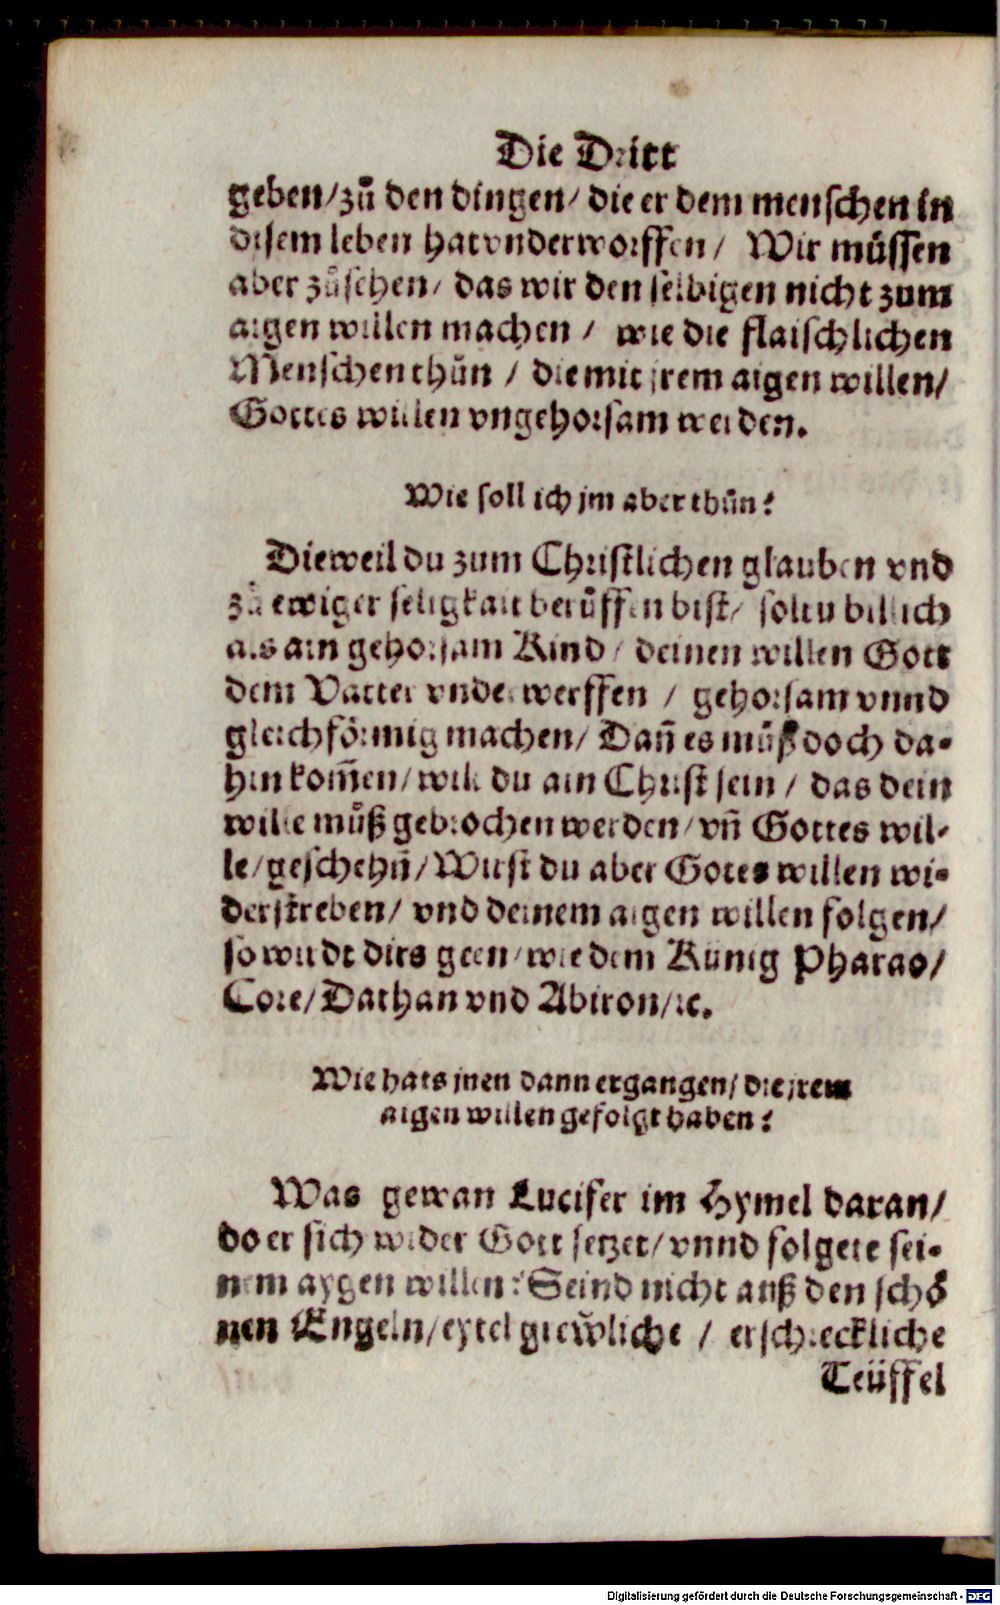 Die Dritt
geben/zů den dingen/ die er dem menschen in
disem leben hat vnderworffen/ Wir müssen
aber zůsehen/ das wir den selbigen nicht zum
aigen willen machen / wie die flaischlichen
Menschen thůn / die mit jrem aigen willen/
Gottes willen vngehorsam werden.
Wie soll ich jm aber thůn?
Dieweil du zum Christlichen glauben vnd
zů ewiger seligkait berůffen bist/ soltu billich
als ain gehorsam Kind/ deinen willen Gott
dem Vatter vnderwerffen / gehorsam vnnd
gleichförmig machen/ Dañ es můß doch da-
hin kom̃en/ wilt du ain Christ sein / das dein
wille můß gebrochen werden/ vñ Gottes wil-
le/geschehñ/ Wirst du aber Gotes willen wi-
derstreben/ vnd deinem aigen willen folgen/
so wirdt dirs geen/ wie dem Künig Pharao/
Core/ Dathan vnd Abiron/ꝛc.
Wie hats jnen dann ergangen/ die jrem
aigen willen gefolgt haben?
Was gewan Lucifer im Hymel daran/
do er sich wider Gott setzet/ vnnd folgete sei-
nem aygen willen? Seind nicht auß den schö
nen Engeln/ eytel grewliche / erschreckliche
Teüffel
Digitalisierung gefördert durch die Deutsche Forschungsgemeinschaft - DFG